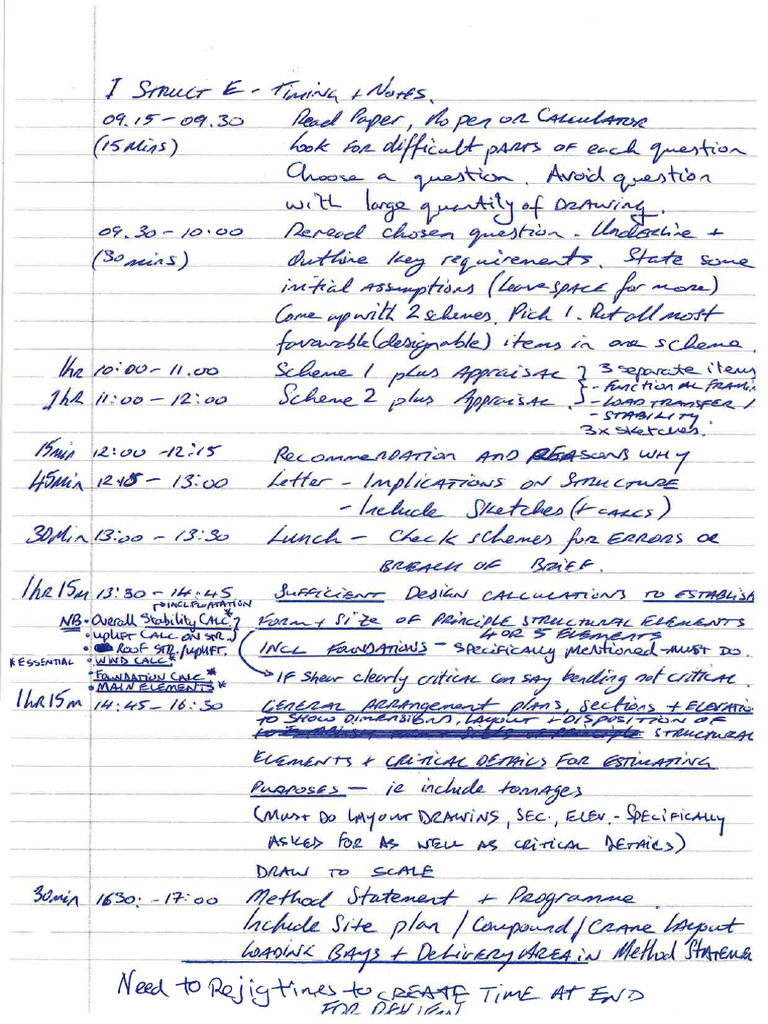 I STRUCT E - TIMING + NOTES.
09.15-09.30 Read Paper, No pen or CALCULATOR
(15 Mins) Look FOR difficult PARTS OF each question
Choose a question. Avoid question
with large quantity of DRAWING.
09.30-10:00 Reread chosen question. Underline +
(30 mins) Outline key requirements. State some
initial ASSUMPTIONS (Leave SPACE for more)
Come up with 2 schemes. Pick 1. Put all most
favourable (designable) items in one scheme.
1hr 10:00-11.00 Scheme 1 plus Appraisal } 3 separate items
1hr 11:00-12:00 Scheme 2 plus Appraisal. } - FUNCTIONAL FRAMI
- LOAD TRANSFER
- STABILITY
3x Sketches.
15min 12:00-12:15 RECOMMENDATION AND REASONS WHY
45min 12:15-13:00 Letter - IMPLICATIONS ON STRUCTURE
- Include Sketches (+ CALCS)
30Min 13:00-13:30 Lunch - Check schemes for ERRORS OR
BREACH OF BRIEF.
1hr 15m 13:30-14:45 SUFFICIENT DESIGN CALCULATIONS TO ESTABLISH
INCL FLOATATION
NB • Overall Stability CALC * } FORM + SIZE OF PRINCIPLE STRUCTURAL ELEMENTS
• UPLIFT CALC ON STR. 4 OR 5 ELEMENTS
• ROOF STR./UPLIFT. INCL FOUNDATIONS - SPECIFICALLY MENTIONED - MUST DO.
* ESSENTIAL • WIND CALC *
• FOUNDATION CALC * IF Shear clearly critical can say bending not critical.
• MAIN ELEMENTS *
1hr 15m 14:45-16:30 GENERAL ARRANGEMENT PLANS, SECTIONS + ELEVATIO
TO SHOW DIMENSIONS, LAYOUT + DISPOSITION OF
STRUCTURAL
ELEMENTS + CRITICAL DETAILS FOR ESTIMATING
PURPOSES - ie include tonnages
(MUST DO LAYOUT DRAWINS, SEC., ELEV. - SPECIFICALLY
ASKED FOR AS WELL AS CRITICAL DETAILS)
DRAW TO SCALE
30min 1630:-17:00 Method Statement + Programme
Include Site plan / Compound / CRANE LAYOUT
LOADING BAYS + DELIVERY AREA IN Method STATEME
Need to Rejig times to CREATE TIME AT END
FOR REVIEW